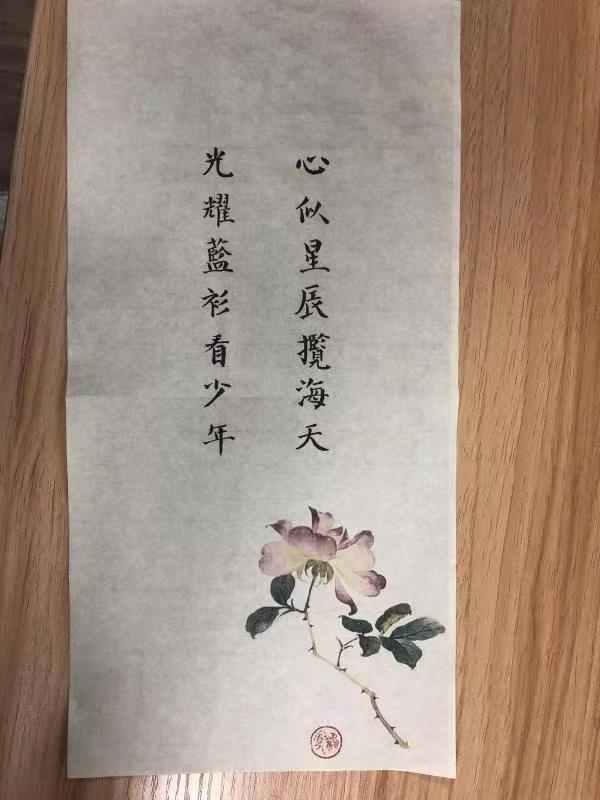 心似星辰攬海天
光耀藍衫看少年